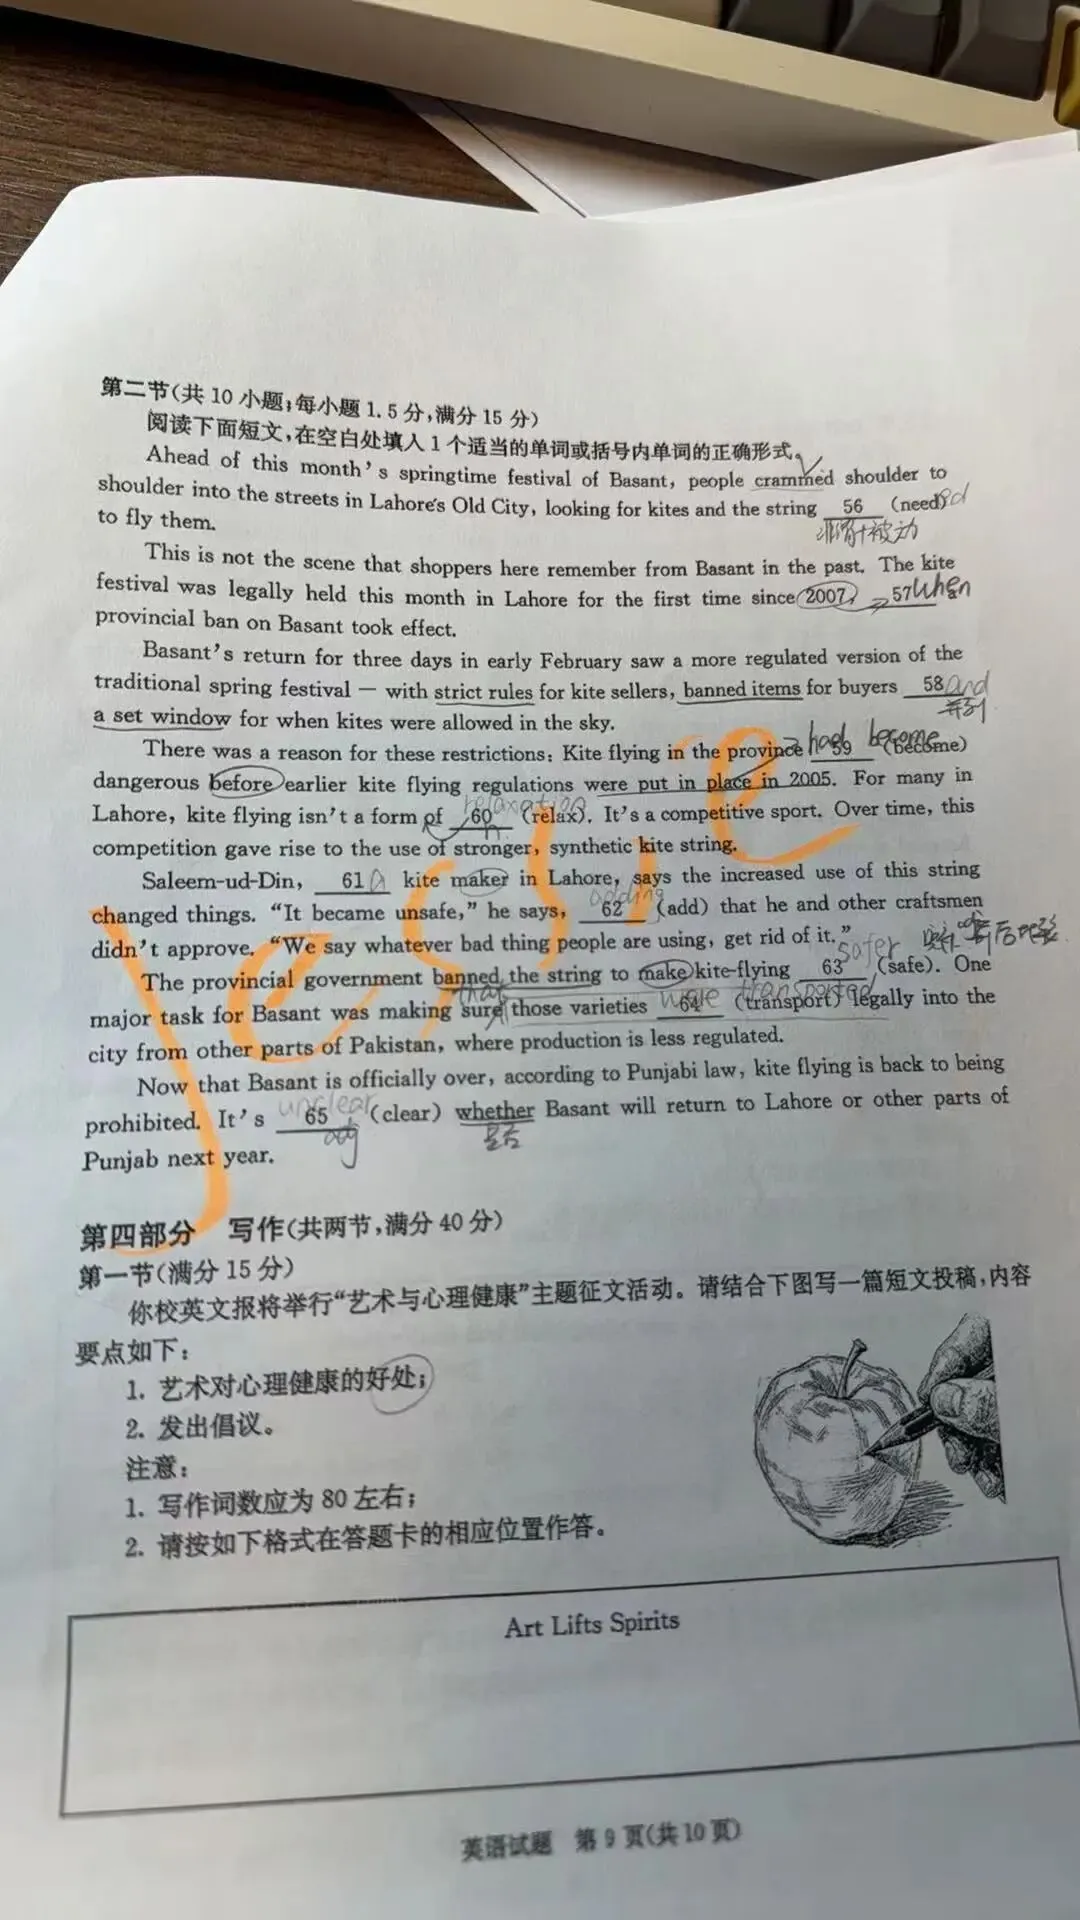 第二节(共 10 小题;每小题 1.5 分,满分 15 分)
阅读下面短文,在空白处填入 1 个适当的单词或括号内单词的正确形式。
Ahead of this month's springtime festival of Basant, people crammed shoulder to
shoulder into the streets in Lahore's Old City, looking for kites and the string 56 (need) ed
非谓+被动
to fly them.
This is not the scene that shoppers here remember from Basant in the past. The kite
festival was legally held this month in Lahore for the first time since 2007, 57 when
provincial ban on Basant took effect.
Basant's return for three days in early February saw a more regulated version of the
traditional spring festival — with strict rules for kite sellers, banned items for buyers 58 and
并列
a set window for when kites were allowed in the sky.
had become
There was a reason for these restrictions: Kite flying in the province 59 (become)
dangerous before earlier kite flying regulations were put in place in 2005. For many in
relaxation
Lahore, kite flying isn't a form of 60 (relax). It's a competitive sport. Over time, this
n.
competition gave rise to the use of stronger, synthetic kite string.
Saleem-ud-Din, 61 a kite maker in Lahore, says the increased use of this string
adding
changed things. "It became unsafe," he says, 62 (add) that he and other craftsmen
didn't approve. "We say whatever bad thing people are using, get rid of it."
safer
The provincial government banned the string to make kite-flying 63 (safe). One
that were transported
major task for Basant was making sure those varieties 64 (transport) legally into the
city from other parts of Pakistan, where production is less regulated.
Now that Basant is officially over, according to Punjabi law, kite flying is back to being
unclear
prohibited. It's 65 (clear) whether Basant will return to Lahore or other parts of
adj 是否
Punjab next year.
Jessie
第四部分 写作(共两节,满分 40 分)
第一节(满分 15 分)
你校英文报将举行“艺术与心理健康”主题征文活动。请结合下图写一篇短文投稿,内容
要点如下:
1. 艺术对心理健康的好处;
2. 发出倡议。
注意:
1. 写作词数应为 80 左右;
2. 请按如下格式在答题卡的相应位置作答。
Art Lifts Spirits
英语试题 第 9 页(共 10 页)